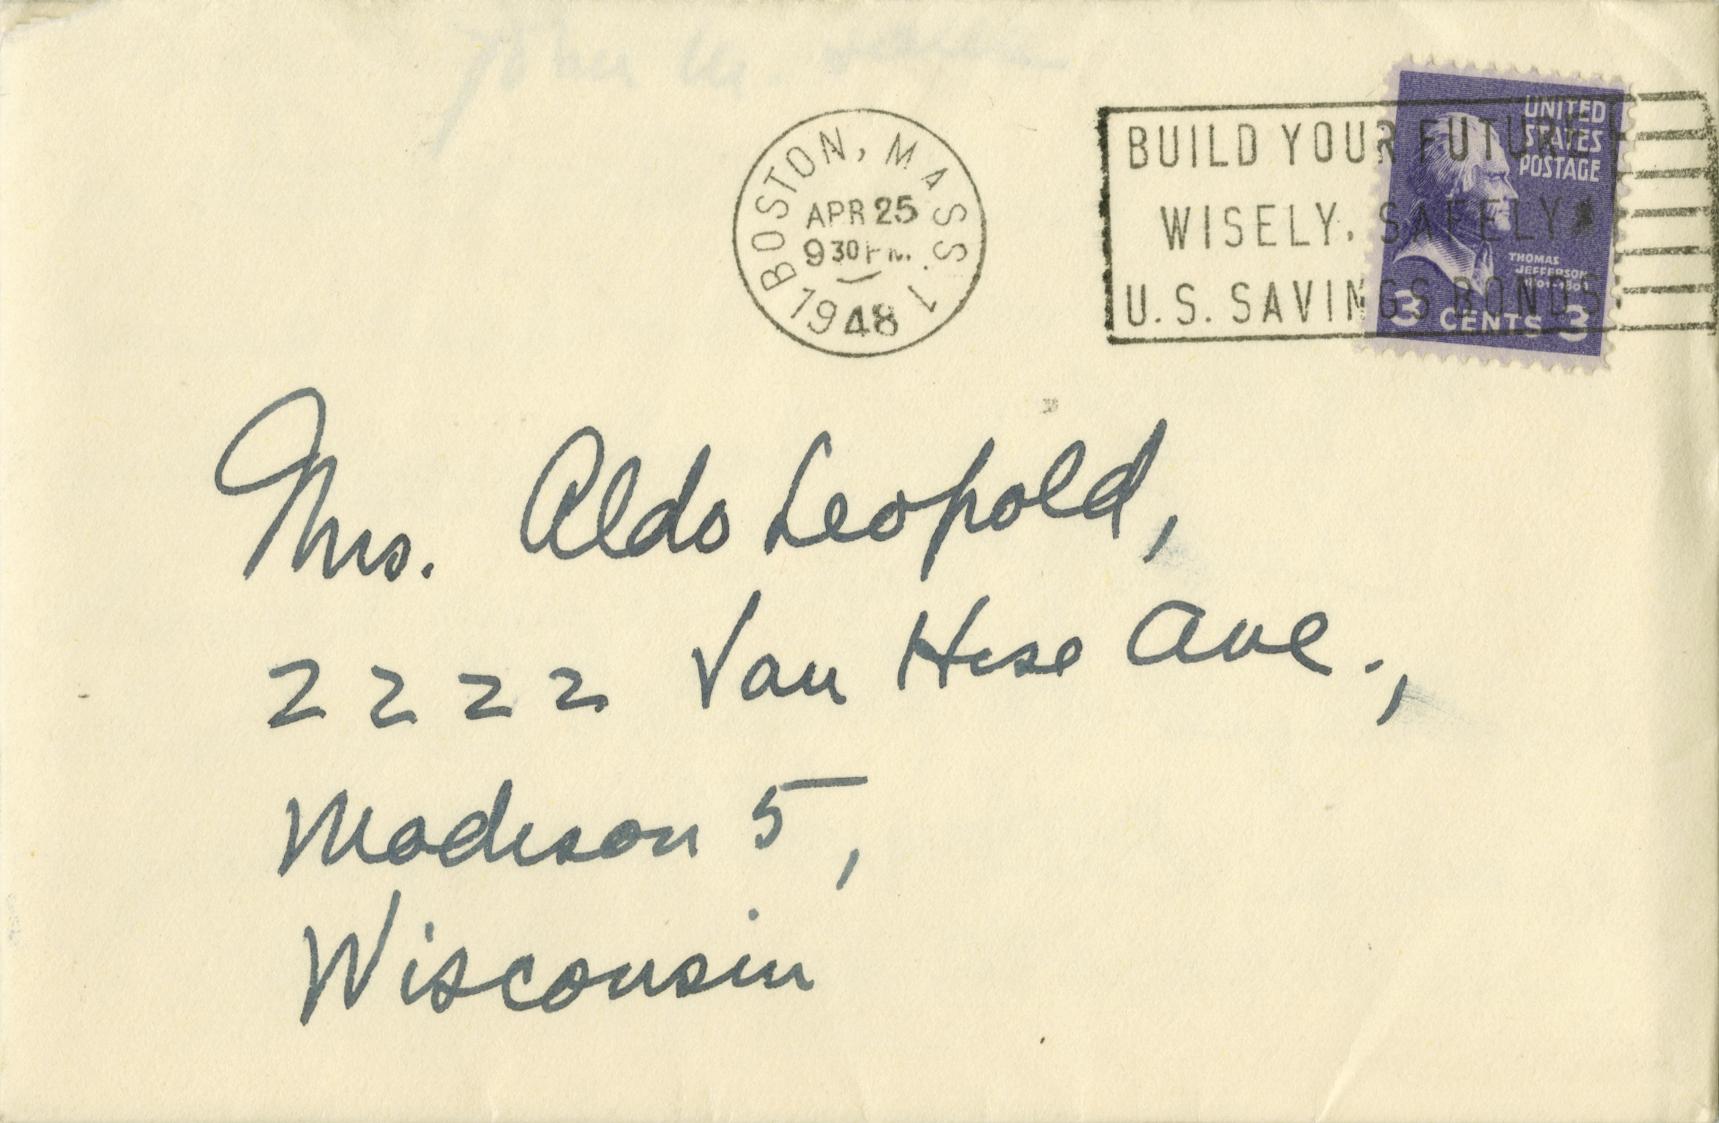 John M.
BOSTON, MASS. 1
APR 25
9 30 PM.
1948
BUILD YOUR FUTURE
WISELY, SAFELY
U.S. SAVINGS BONDS
UNITED
STATES
POSTAGE
THOMAS
JEFFERSON
3 CENTS 3
Mrs. Aldo Leopold,
2222 Van Hise Ave.,
Madison 5,
Wisconsin